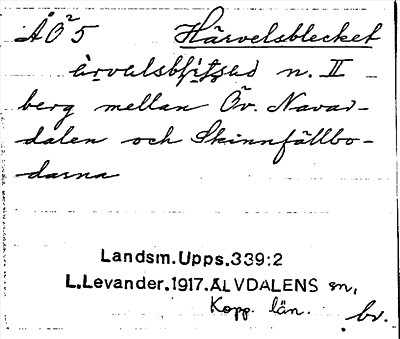 ÅÖ²5 Härvelsblecket
n. II
berg mellan Öv. Navar-
dalen och Skinnfällbo-
darna
Landsm.Upps.339:2
L.Levander.1917.ÄLVDALENS sn,
Kopp. län.
bv.